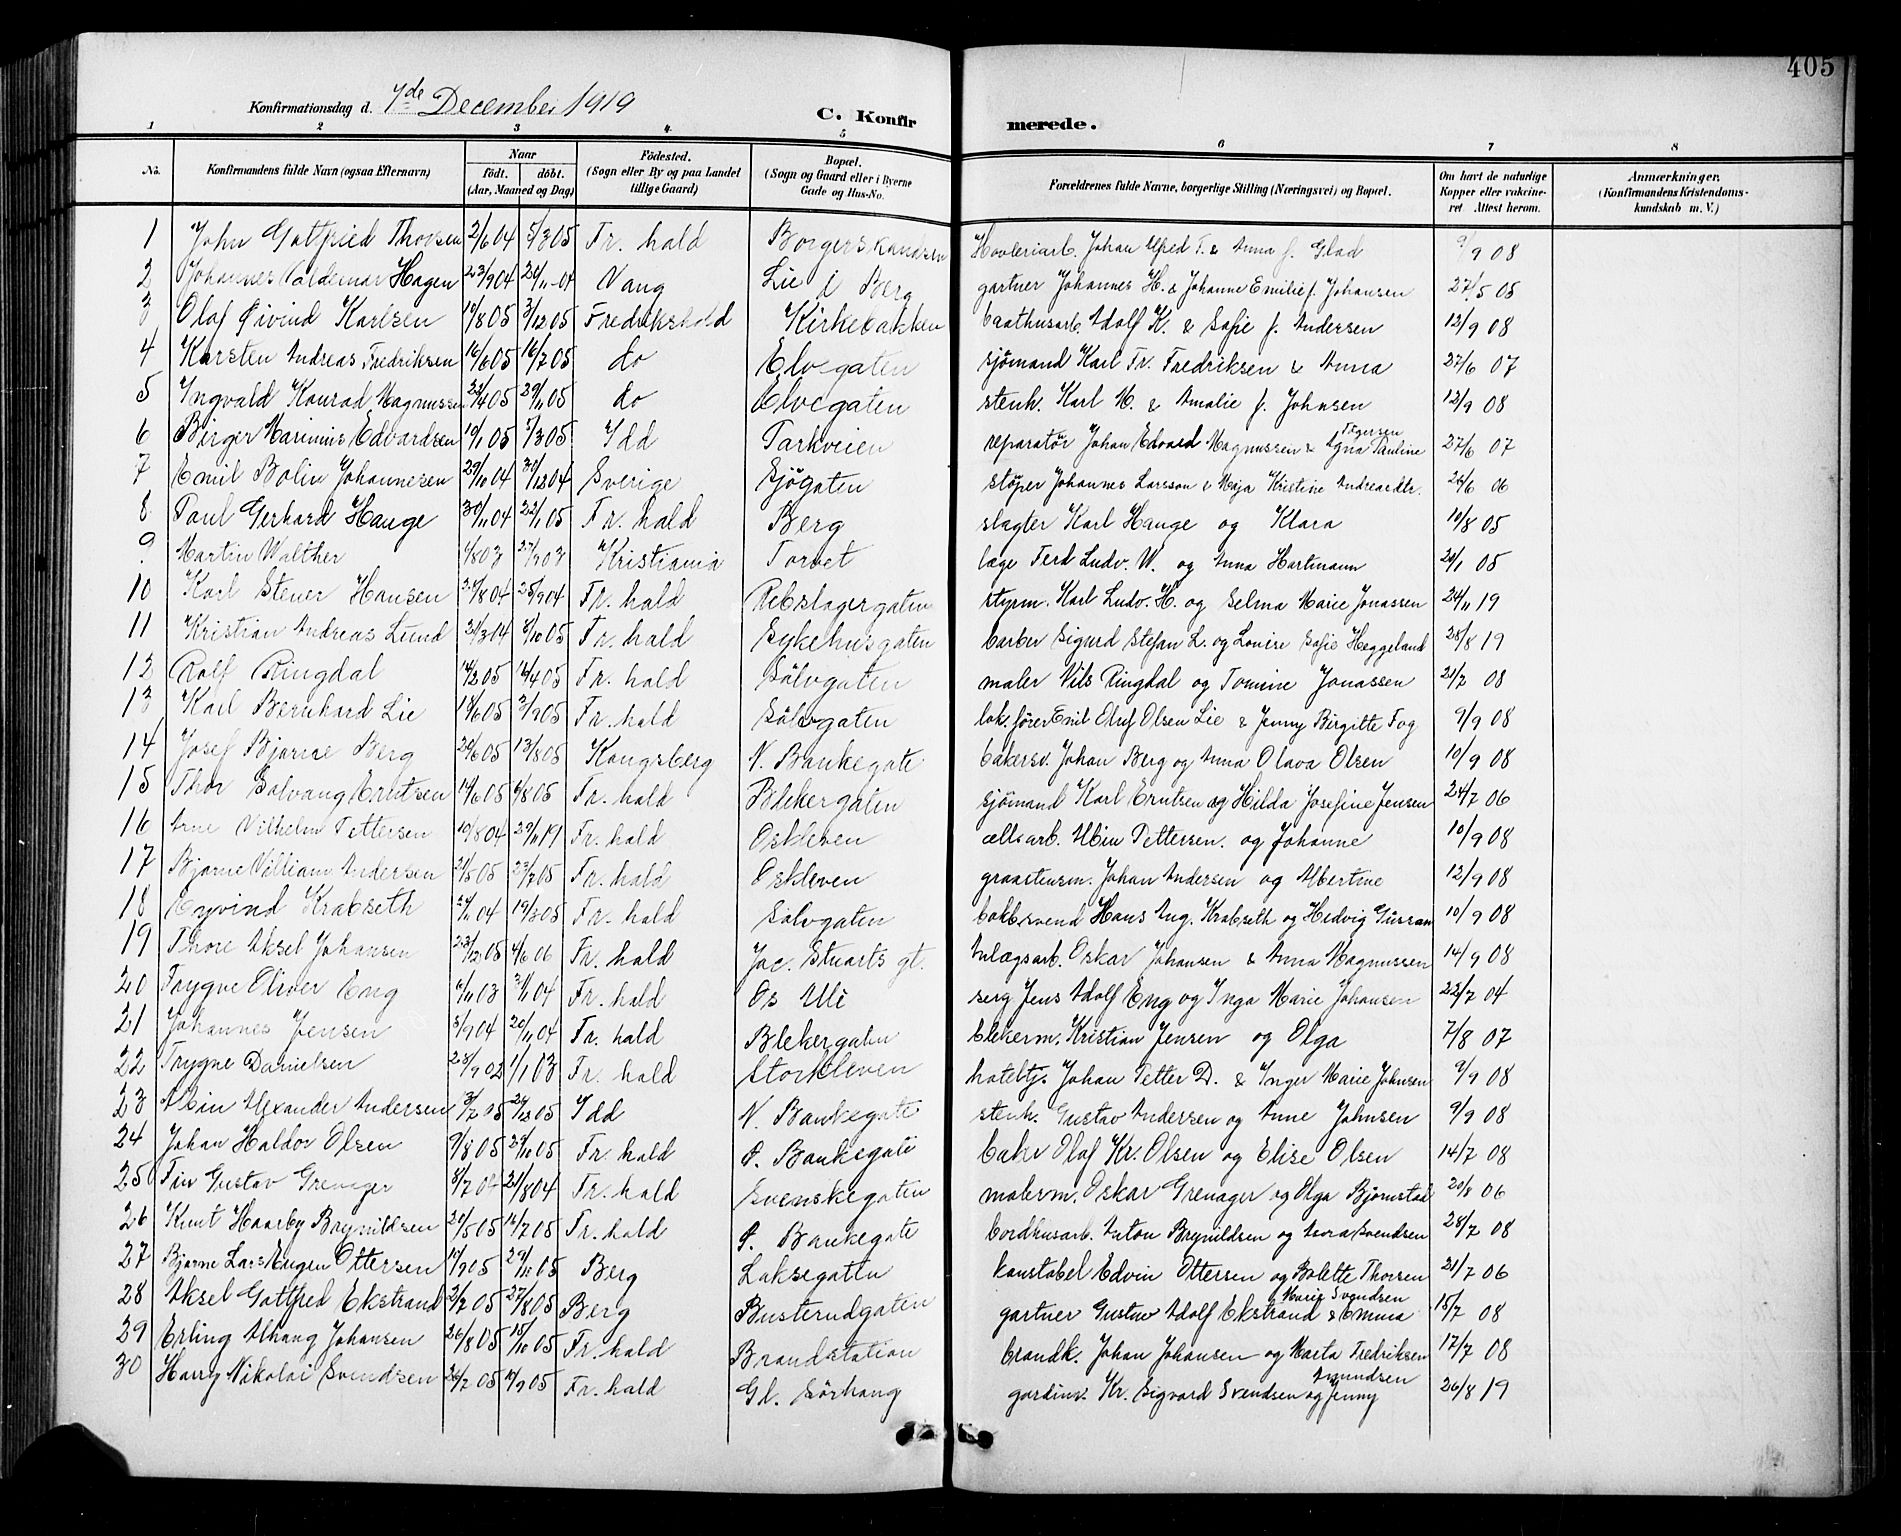 405
Konfirmationsdag d. 7de December 1919
C. Konfirmerede.
1 2 3 4 5 6 7 8
No. Konfirmandens fulde Navn (ogsaa Efternavn) Naar födt. döbt. (Aar, Maaned og Dag) Födested. (Sogn eller By og paa Landet tillige Gaard) Bopæl. (Sogn og Gaard eller i Byerne Gade og Hus-No. Forældrenes fulde Navne, borgerlige Stilling (Næringsvei) og Bopæl. Om havt de naturlige Kopper eller vakcineret Attest herom. Anmærkninger. (Konfirmandens Kristendomskundskab m. V.)
1 John Gottfried Thorsen 2/6 04 5/3 05 Fr. hald Borgerskandsen Hovleriarb. Johan Alfred T. & Anna f. Glad 9/9 08
2 Johannes Valdemar Hagen 23/9 04 20/11 04 Vang Lie i Berg gartner Johannes H. & Johanne Emilie f. Johansen 27/5 05
3 Olaf Øivind Karlsen 19/8 05 3/12 05 Fredrikshald Kirkebakken baathusarb. Adolf K. & Sofie f. Andersen 12/9 08
4 Karsten Andreas Fredriksen 16/6 05 16/7 05 do Elvegaten sjömand Karl Fr. Fredriksen & Anna 27/6 07
5 Ingvald Konrad Magnussen 22/4 05 29/11 05 do Elvegaten stenh. Karl M. & Amalie f. Johnsen 12/9 08
6 Birger Marinius Edvardsen 10/1 05 5/3 05 Idd Parkveien reparatør Johan Edvard Magnussen & Agna Pauline Pegersen 27/6 07
7 Emil Bolin Johannesen 29/10 04 30/12 04 Sverige Sjögaten stöper Johannes Larsson & Maja Kristine Andreasdtr. 26/6 06
8 Paul Gerhard Hauge 30/11 04 22/1 05 Fr. hald Berg slagter Karl Hauge og Klara 10/8 05
9 Martin Walther 1/8 03 27/9 03 Kristiania Torvet læge Ferd Ludv. W. og Anna Hartmann 20/1 05
10 Karl Stener Hansen 24/8 04 25/9 04 Fr. hald Rebslagergaten styrm. Karl Ludv. H. og Selma Marie Jonassen 24/11 19
11 Kristian Andreas Lund 21/3 04 8/10 05 Fr. hald Sykehusgaten barber Sigurd Stefan L. og Lovise Sofie Heggeland 28/8 19
12 Rolf Ringdal 14/2 05 16/4 05 Fr. hald Sölvgaten maler Nils Ringdal og Tomine Jonassen 21/7 08
13 Karl Bernhard Lie 18/6 05 3/9 05 Fr. hald Sölvgaten lok. förer Emil Oluf Olsen Lie & Jenny Birgitte Fog 9/9 08
14 Josef Bjarne Berg 20/6 05 13/8 05 Kongsberg N. Bankegate bakersv. Johan Berg og Anna Olava Olsen 10/9 08
15 Thor Solvang Erntsen 14/6 05 6/8 05 Fr. hald Blekergaten sjömand Karl Erntsen og Hilda Josefine Jensen 24/7 06
16 Arne Vilhelm Pettersen 10/8 04 29/11 19 Fr. hald Oskleven cellsarb. Albin Pettersen. og Johanne 10/9 08
17 Bjarne Villiam Andersen 21/5 05 23/7 05 Fr. hald Oskleven graastensm. Johan Andersen og Albertine 12/9 08
18 Eyvind Krabseth 2/11 04 19/3 05 Fr. hald Sølvgaten bakksvend Hans Aug. Krabseth og Hedvig Gussran 10/9 08
19 Thore Aksel Johansen 23/12 05 4/6 06 Fr. hald Jac. Stuarts gt. Anlægsarb. Oskar Johansen & Anna Magnussen 14/9 08
20 Trygve Oliver Eng 6/11 03 31/1 04 Fr. hald Os Alle serg Jens Adolf Eng og Inga Marie Johansen 22/7 04
21 Johannes Jensen 5/9 04 20/11 04 Fr. hald Blekergaten blekerm. Kristian Jensen og Olga 7/8 07
22 Trygve Danielsen 23/9 02 1/1 03 Fr. hald Storkleven hotelbtj. Johan Petter D. & Inger Marie Johnsen 9/9 08
23 Albin Alexander Andersen 3/7 05 24/12 05 Idd N. Bankegate stenh. Gustav Andersen og Anne Johnsen 9/9 08
24 Johan Haldor Olsen 9/8 05 29/10 05 Fr. hald P. Bankegate baker Olaf Kr. Olsen og Elise Olsen 14/7 08
25 Fin Gustav Grenager 8/7 04 21/8 04 Fr. hald Svenskegaten malerm. Oskar Grenager og Olga Bjørnstad 20/8 06
26 Knut Haarby Brynildsen 29/5 05 16/7 05 Fr. hald P. Bankegate bordhusarb. Anton Brynildsen og Thora Svendsen 28/7 08
27 Bjarne Lars Eugen Ottersen 10/9 05 29/10 05 Berg Laksegaten konstabel Edvin Ottersen og Bolette Thorsen 21/7 06
28 Aksel Gottfred Ekstrand 2/7 05 27/8 05 Berg Busterudgaten gartner Gustav Adolf Ekstrand & Emma Marie Svendsen 15/7 08
29 Erling Alhaug Johansen 26/8 05 15/10 05 Fr. hald Brandstation brandk. Johan Johansen og Marta Fredriksen 17/7 08
30 Harry Nikolai Svendsen 26/7 05 17/9 05 Fr. hald Gl. Sörhaug gardinv. Kr. Sigvard Svendsen og Jenny Amundsen 26/8 19